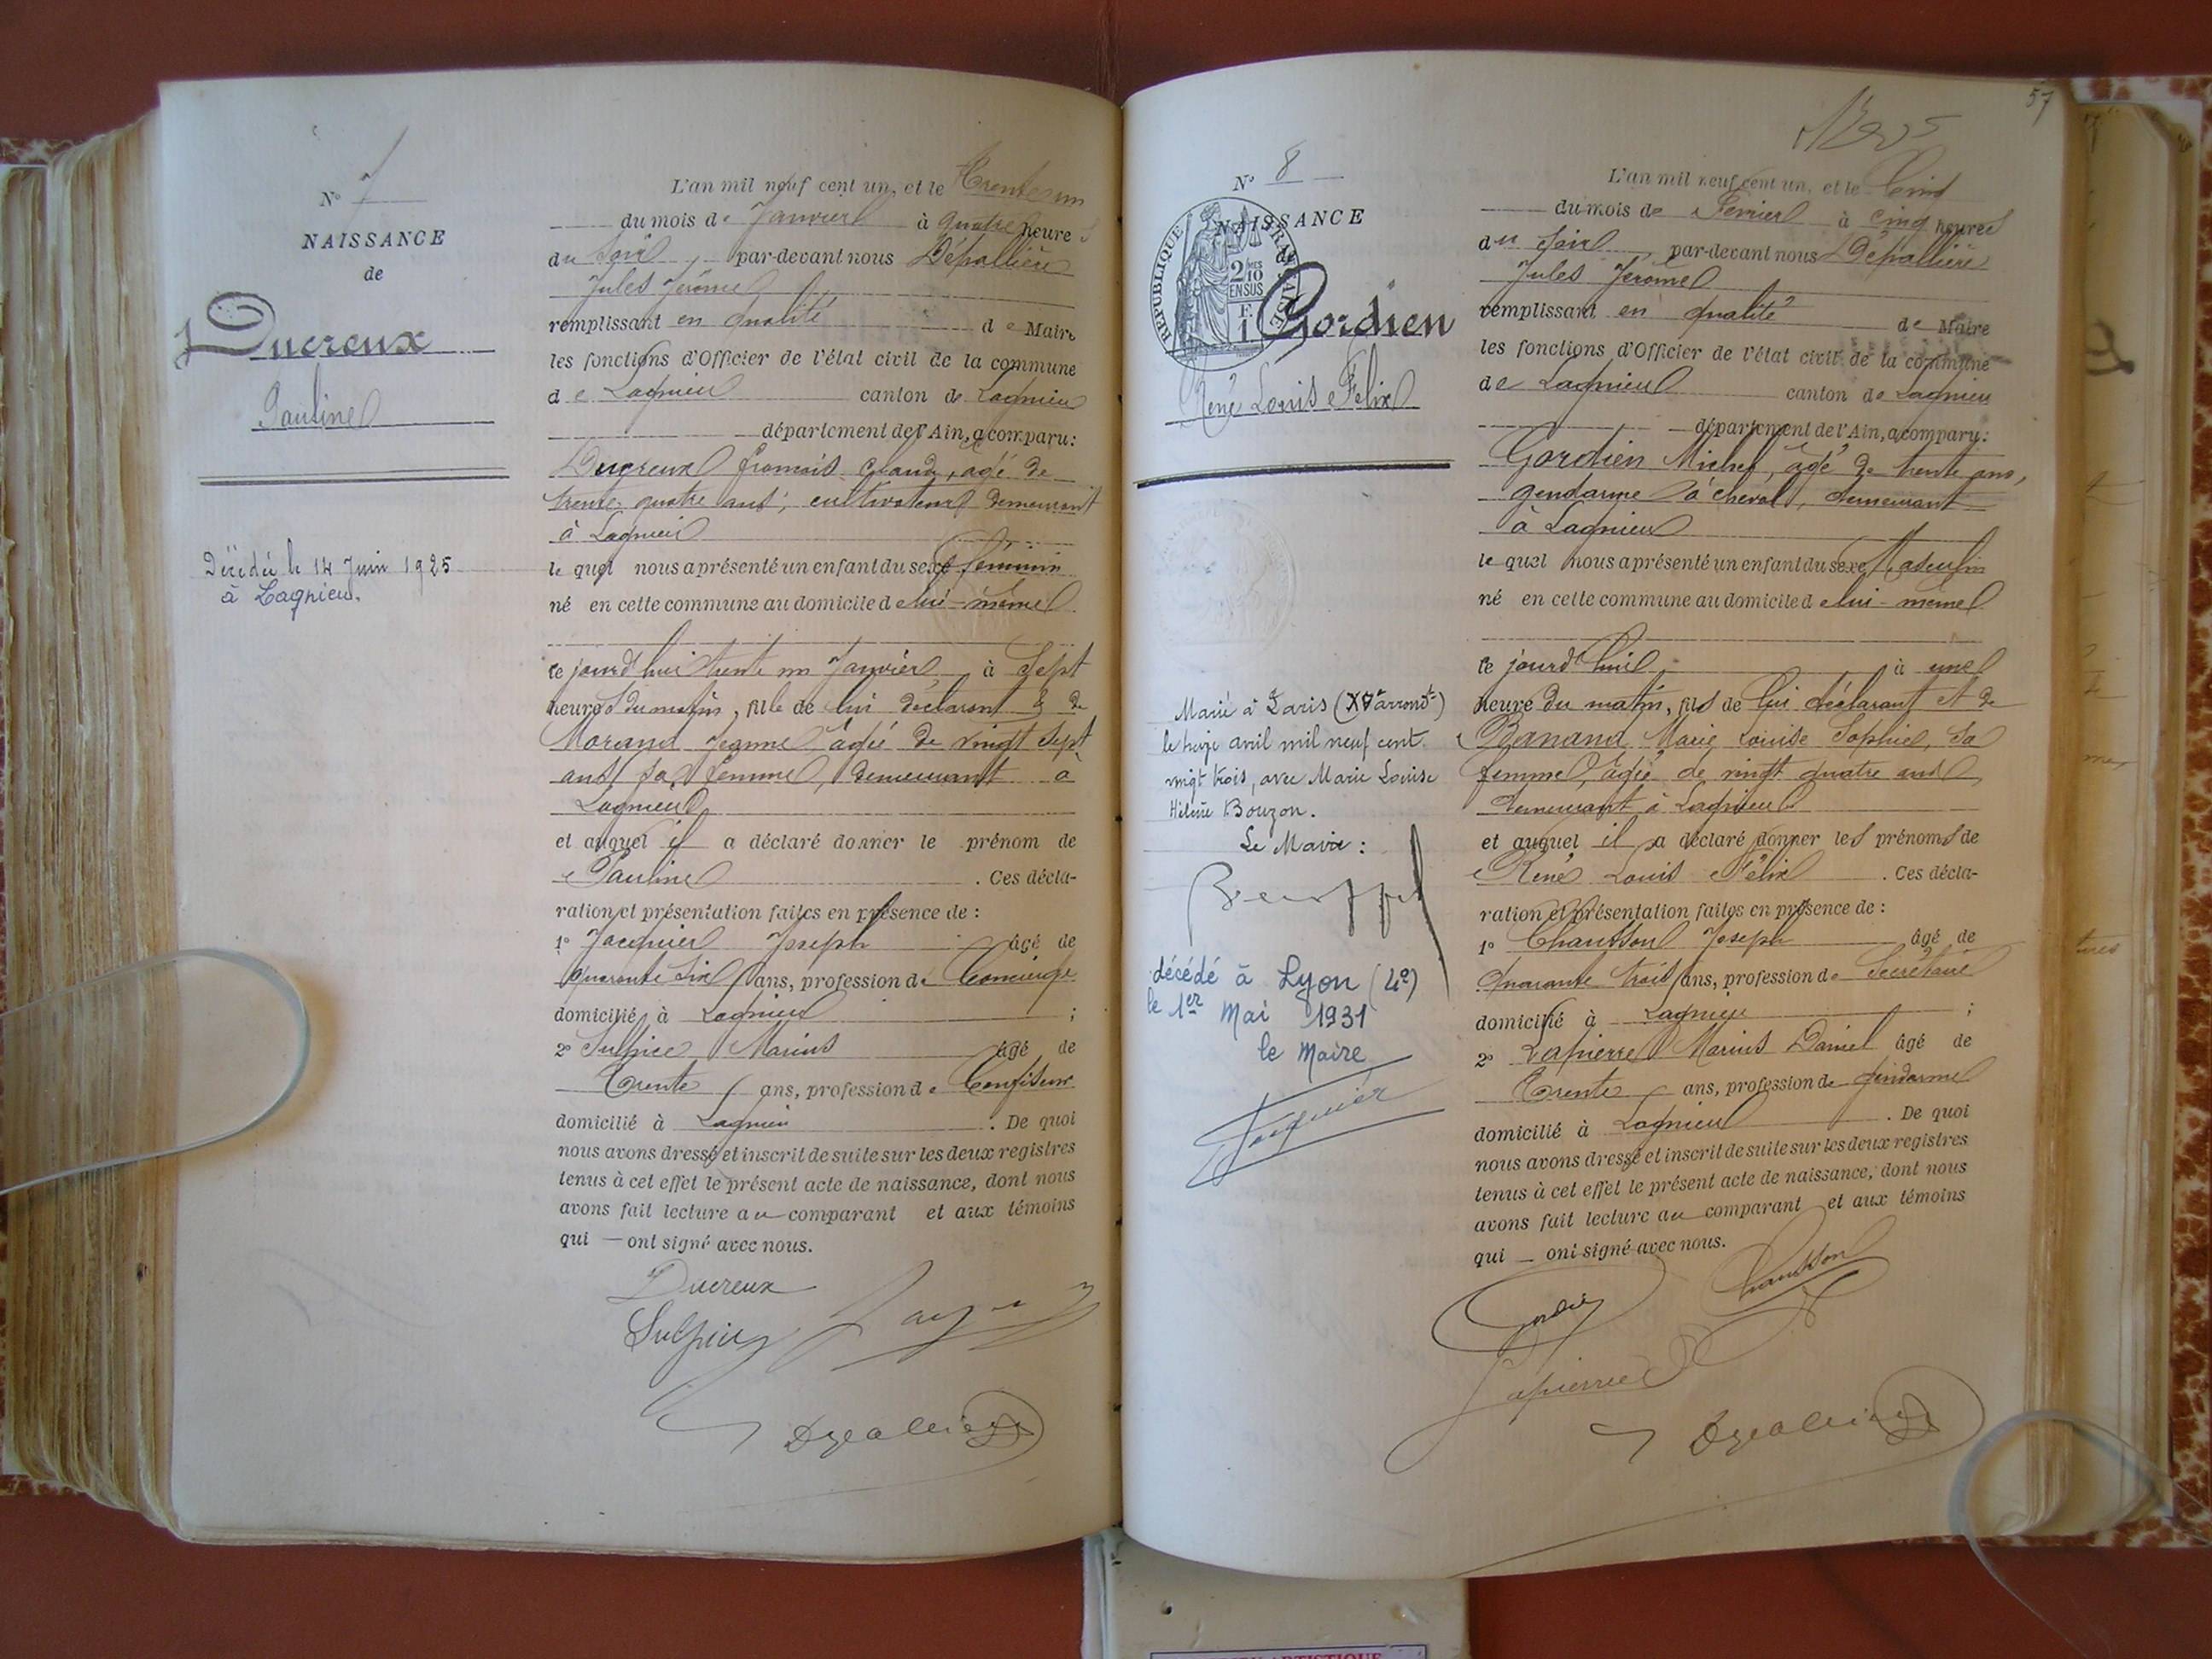 N° 7
NAISSANCE
de
Ducreux
Pauline
Décédée le 14 Juin 1925
à Lagnieu.
L'an mil neuf cent un, et le Trente un
du mois de Janvier à quatre heures
du soir, par-devant nous Dépallière
Jules Jérôme
remplissant en qualité de Maire
les fonctions d'Officier de l'état civil de la commune
de Lagnieu canton de Lagnieu
département de l'Ain, a comparu:
Ducreux françois Claude, agé de
trente-quatre ans, cultivateur demeurant
à Lagnieu
le quel nous a présenté un enfant du sexe féminin
né en cette commune au domicile de lui-même
ce jourd'hui trente un Janvier, à Sept
heures du matin, fille de lui déclarant & de
Morand Jeanne agée de vingt sept
ans, sa femme, demeurant à
Lagnieu
et auquel il a déclaré donner le prénom de
Pauline . Ces décla-
ration et présentation faites en présence de :
1° Jacquier Joseph âgé de
quarante six ans, profession de Concierge
domicilié à Lagnieu ;
2° Sulpice Marius âgé de
Trente ans, profession de Confiseur
domicilié à Lagnieu . De quoi
nous avons dressé et inscrit de suite sur les deux registres
tenus à cet effet le présent acte de naissance, dont nous
avons fait lecture au comparant et aux témoins
qui — ont signé avec nous.
Ducreux
Sulpice
57
N° 8
NAISSANCE
de
REPUBLIQUE FRANÇAISE
2/10 MES
EN SUS
1 F.
Gordien
René Louis Félix
Marié à Paris (XVe arrondt)
le treize avril mil neuf cent
vingt trois, avec Marie Louise
Hélène Bouzon.
Le Maire :
décédé à Lyon (4e)
le 1er Mai 1931
le Maire
Jacquier
L'an mil neuf cent un, et le Cinq
du mois de Février à cinq heures
du soir par-devant nous Dépallière
Jules Jérôme
remplissant en qualité de Maire
les fonctions d'Officier de l'état civil de la commune
de Lagnieu canton de Lagnieu
département de l'Ain, a comparu:
Gordien Michel, âgé de trente ans,
gendarme à cheval, demeurant
à Lagnieu
le quel nous a présenté un enfant du sexe Masculin
né en cette commune au domicile de lui-même
ce jourd'hui à une
heure du matin, fils de lui déclarant et de
Banand Marie Louise Sophie, sa
femme, agée de vingt quatre ans
demeurant à Lagnieu
et auquel il a déclaré donner les prénoms de
René Louis Félix . Ces décla-
ration et présentation faites en présence de :
1° Chausson Joseph âgé de
quarante trois ans, profession de Secrétaire
domicilié à Lagnieu ;
2° Lapierre Marius Daniel âgé de
Trente ans, profession de gendarme
domicilié à Lagnieu . De quoi
nous avons dressé et inscrit de suite sur les deux registres
tenus à cet effet le présent acte de naissance, dont nous
avons fait lecture au comparant et aux témoins
qui — ont signé avec nous.
Chausson
Gordien
Lapierre